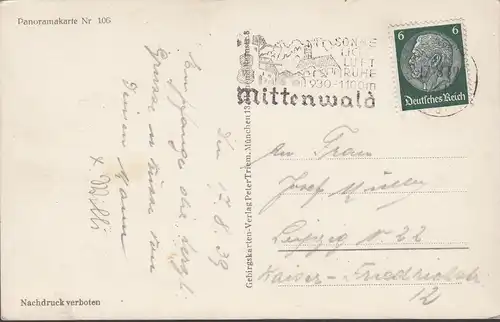 Panoramakarte Nr 106
Den 17.8.39
Empfange die herzl.
Grüsse u Küsse von
Deinem Mann
Willi
Nachdruck verboten
Gebirgskarten-Verlag Peter Triem, München 13
SONNE
LICHT
LUFT
RUHE
930-1100m
Mittenwald
6 6
Deutsches Reich
An Frau
Josef Müller
Leipzig N. 22
Kaiser-Friedrichstr
12